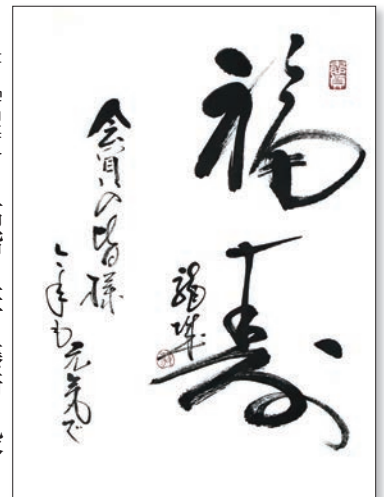 福寿
会員の皆様
今年も元気で